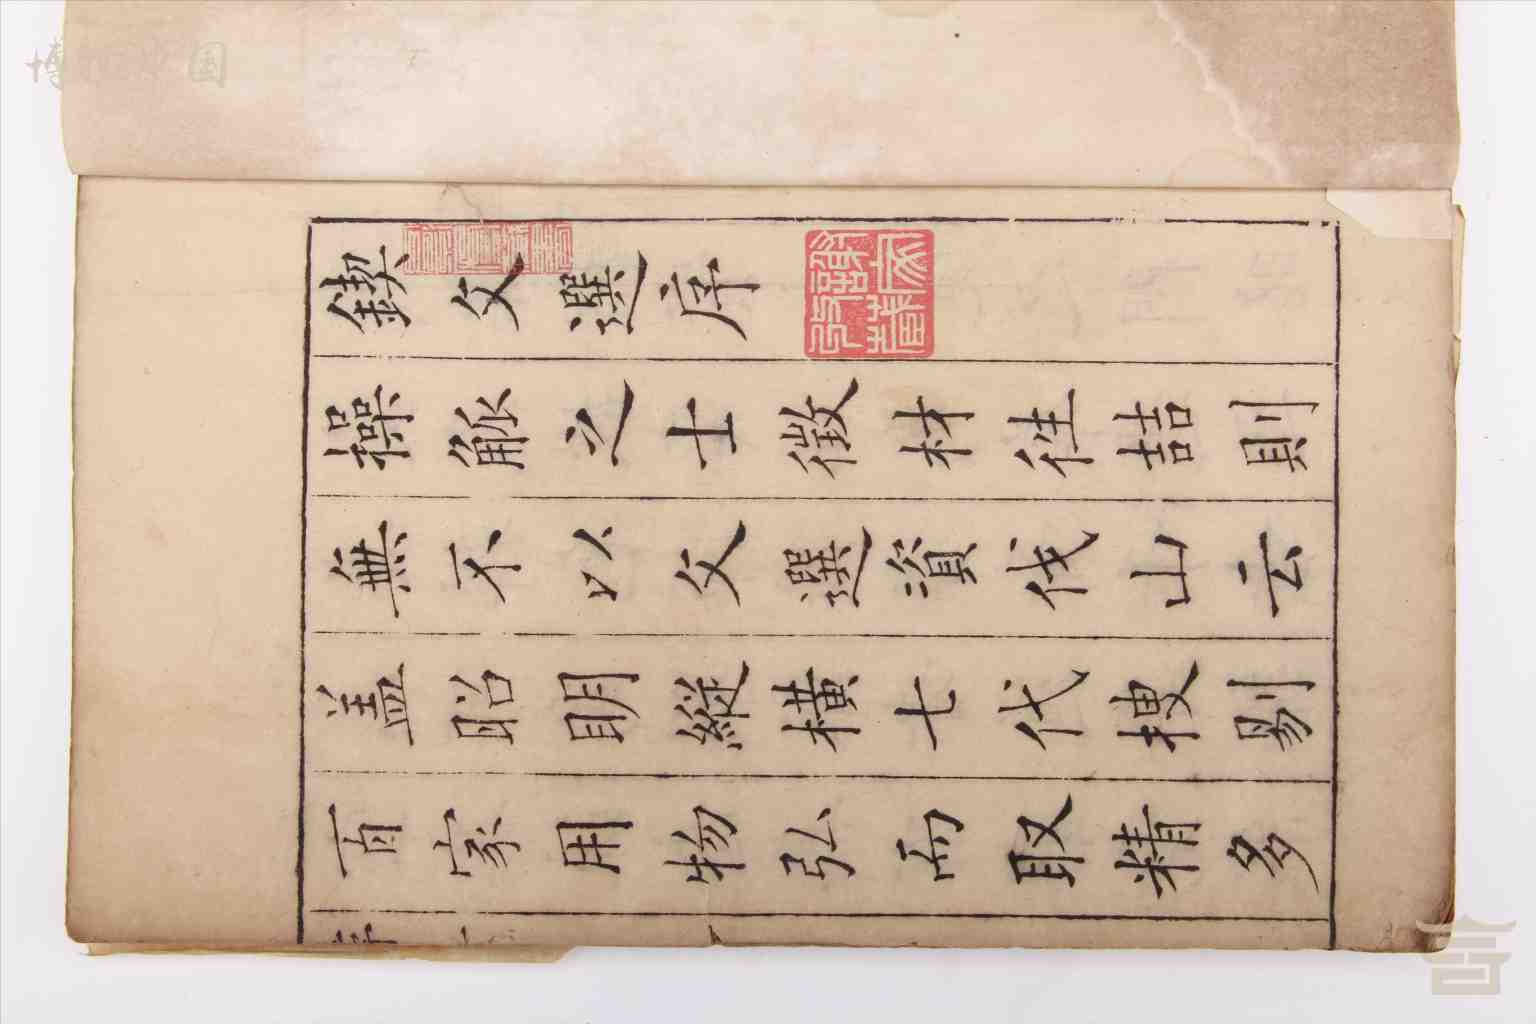 鍥文選序
操觚之士徵材往喆則
無不以文選資伐山云
盖昭明縱横七代搜剔
百家用物弘而取精多